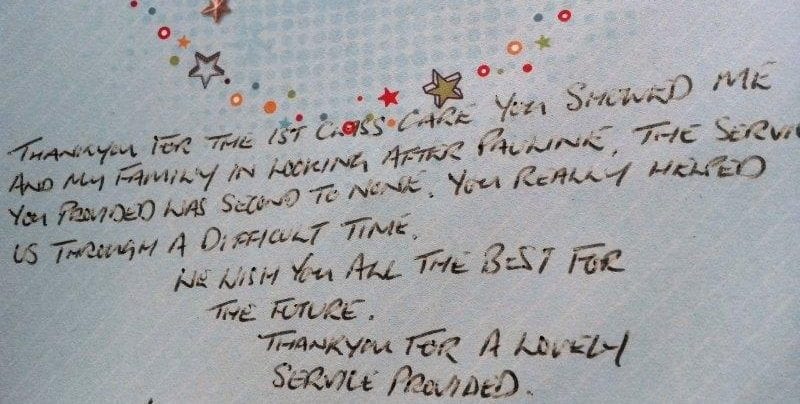 THANKYOU FOR THE 1ST CLASS CARE YOU SHOWED ME
AND MY FAMILY IN LOOKING AFTER PAULINE. THE SERVI
YOU PROVIDED WAS SECOND TO NONE. YOU REALLY HELPED
US THROUGH A DIFFICULT TIME.
WE WISH YOU ALL THE BEST FOR
THE FUTURE.
THANKYOU FOR A LOVELY
SERVICE PROVIDED.